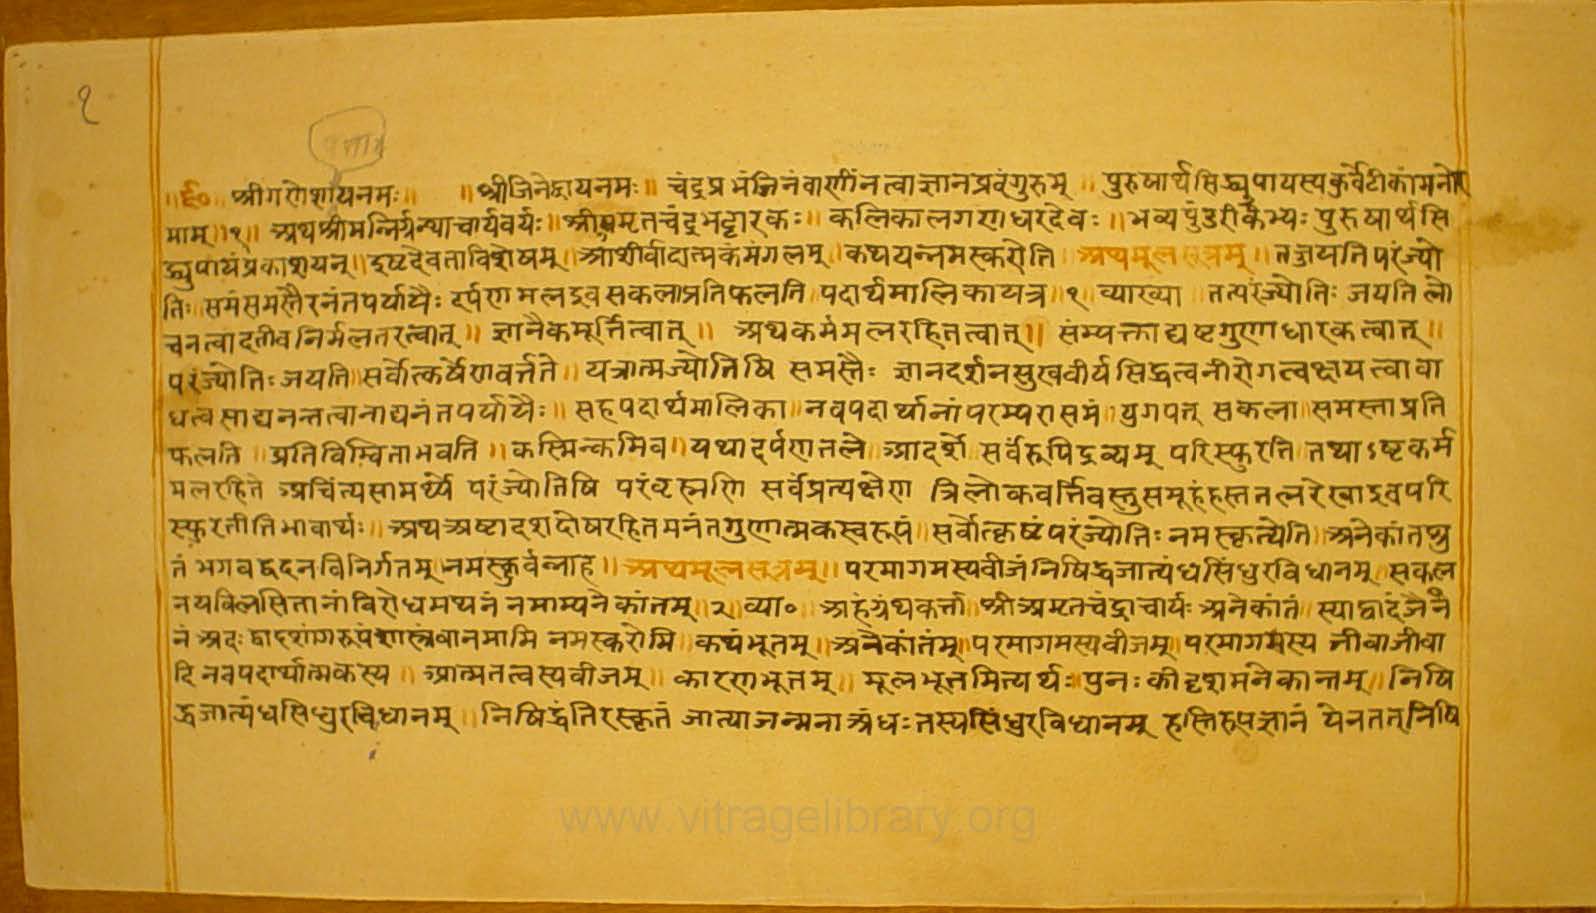 १
॥६०॥ श्रीगणेशायनमः॥ ॥श्रीजिनेंद्रायनमः॥ चंद्रप्रभंजिनंवाणींनत्वाज्ञानप्रदंगुरुम् ॥ पुरुषार्थसिद्ध्युपायस्यकुर्वेटीकांमनोर
माम्॥१॥ अथश्रीमन्निर्ग्रन्थाचार्यवर्यः॥ श्रीअमृतचंद्रभट्टारकः॥ कलिकालगणधरदेवः॥ भव्यपुंडरीकेभ्यः पुरुषार्थसि
द्ध्युपायंप्रकाशयन्॥ इष्टदेवताविशेषम्॥ आशीर्वादात्मकंमंगलम्॥ कथयन्नमस्करोति ॥ अथमूलसूत्रम्॥ तज्जयतिपरंज्यो
तिः समंसमस्तैरनंतपर्यायैः दर्पणामलइवसकलाप्रतिफलति पदार्थमालिकायत्र॥१॥ व्याख्या ॥ तत्परंज्योतिः जयति लो
चनत्वादतीवनिर्मलतरत्वात्॥ ज्ञानैकमूर्त्तित्वात्॥ अथकर्ममलरहितत्वात्॥ संम्यक्ताद्यष्टगुणाधारकत्वात्॥
परंज्योतिः जयति॥ सर्वोत्कर्षेणवर्त्तते॥ यत्रात्मज्योतिषि समस्तैः ज्ञानदर्शनसुखवीर्यसिद्धत्वनीरोगत्वक्षायत्वावा
धत्वसाद्यनन्तत्वानाद्यनंतपर्यायैः॥ सहपदार्थमालिका॥ नवपदार्थानांपरम्परासमं॥ युगपत् सकला॥ समस्ताप्रति
फलति ॥ प्रतिविम्विताभवति॥ कस्मिन्कमिव॥ यथादर्पणतले आदर्शे सर्वंरूपिद्रव्यम् परिस्फुरति तथाऽष्टकर्म
मलरहिते अचिंत्यसामर्थ्ये परंज्योतिषि परंब्रह्मणि सर्वंप्रत्यक्षेण त्रिलोकवर्त्तिवस्तुसमूहंहस्ततलरेखाइवपरि
स्फुरतीतिभावार्थः॥ अथअष्टादशदोषरहितमनंतगुणात्मकस्वरूपं॥ सर्वोत्कृष्टंपरंज्योतिः नमस्कृत्येति॥ अनेकांतश्रु
तं भगवद्वदनविनिर्गतम् नमस्कुर्वन्नाह॥ अथमूलसूत्रम्॥ परमागमस्यवीजंनिषिद्धजात्यंधसिंधुरविधानम्॥ सकल
नयविलसितानांविरोधमथनं नमाम्यनेकांतम्॥२॥ व्या॰ ॥ अहंग्रंथकर्त्ता श्रीअमृतचंद्राचार्यः अनेकांतं॥ स्याद्वादंजैनें
नं अदः द्वादशांगरूपंशास्त्रंवानमामि नमस्करोमि॥ कथंभूतम्॥ अनेकांतंम्॥ परमागमस्यवीजम्॥ परमागमस्य जीवाजीवा
दिनवपदार्थात्मकस्य॥ आत्मतत्वस्यवीजम्॥ कारणभूतम्॥ मूलभूतमित्यर्थः॥ पुनः कीदृशमनेकान्तम्॥ निषि
द्धजात्यंधसिंधुरविधानम्॥ निषिद्धंतिरस्कृतं जात्याजन्मनाअंधः तस्यसिंधुरविधानम् हस्तिरूपज्ञानं येनतत्निषि
www.vitragelibrary.org